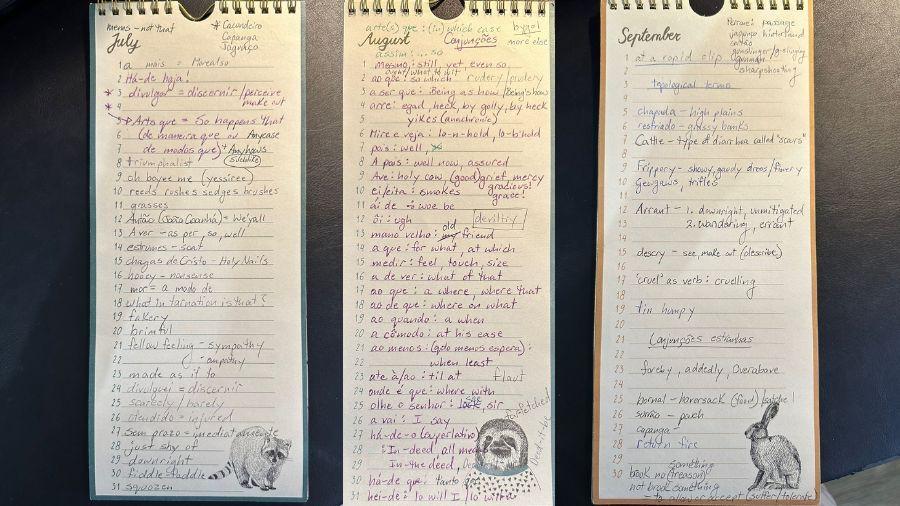 mems - not that
* Cacundeiro
Capanga
Jagunço
July
1 a mais = Morealso
2 Há-de haja!
* 3 divulgar = discernir/perceive
* 4 make out
5 → Arts que = So happens that
6 (de maneira que ou Anycase
7 de modos que) + Anyhows
8 triumphalist
9 oh boyee me (yessiree)
10 reeds rushes sedges brushes
11 grasses
12 Antão (João Goanhá) = We'yall
13 A ver - as per, so, well
14 estrumes - scat
15 chagas de Cristo - Holy Nails
16 hooey - nonsense
17 mor = a modo de
18 what in tarnation is that?
19 fakery
20 brimful
21 fellow feeling - sympathy
22 : empathy
23 made as if to
24 divulguei = discernir
25 scarcely / barely
26 ofendido = injured
27 sem prazo = imediatamente
28 just shy of
29 downright
30 fiddle-faddle
31 squozen
arte(s) que : (in) which case
bygol
August
Conjunções
more else
assim : ... so
1 mesmo : still, yet, even so,
2 ao que : so which rudery/prudery
3 a ser que : Being as how / Being's how
4 arre : egad, heck, by golly, by heck
5 yikes (anachronic)
6 Mire e veja : lo-n-hold, lo-b'hold
7 pois : well,
8 A pois : well now, assured
9 Ave : holy cow, (good) grief, mercy
10 ei/eita : smokes gracious!
grace!
11 ai de → woe be
12 ôi : ugh
deviltry
13 mano velho : old friend
14 a que : for what, at which
15 medir : feel, touch, size
16 a de ver : what of that
17 ao que : a where, where that
18 ao de que : where on what
19 ao quando : a when
20 a cômodo : at his ease
21 ao menos : (qdo menos espera) :
22 when least
23 ate à/ao : til at flaut
24 onde é que : where with
25 olhe o senhor : see, sir
26 a vai : I say
27 há-de-o (superlatino)
28 : In-deed, all me
29 In-the deed,
30 há-de que : tanto
31 hei-de : lo will I / lo with a
September
passage
jagunço hinterhand
gunslinger / g-slinging
gunman
sharpshooting
1 at a rapid clip
2
3 topological terms
4
5 chapada - high plains
6 resfriado - grassy banks
7 Cathe - type of diarrhea called "scours"
8
9 Frippery - showy, gaudy dress / finery
10 Gewgaws, trifles
11
12 Arrant - 1. downright, unmitigated
13 2. wandering, errant
14
15 descry - see, make out (describe)
16
17 'cruel' as verb : cruelling
18
19 tin humpy
20
21 Conjunções estranhas
22
23 forehy, addedly, Overabove
24
25 bornal - haversack (food) satchel
26 surrão - pouch
27 capanga -
28
29
30 brook no (treason)
something
not brook something
= to allow or accept (suffer/tolerate)